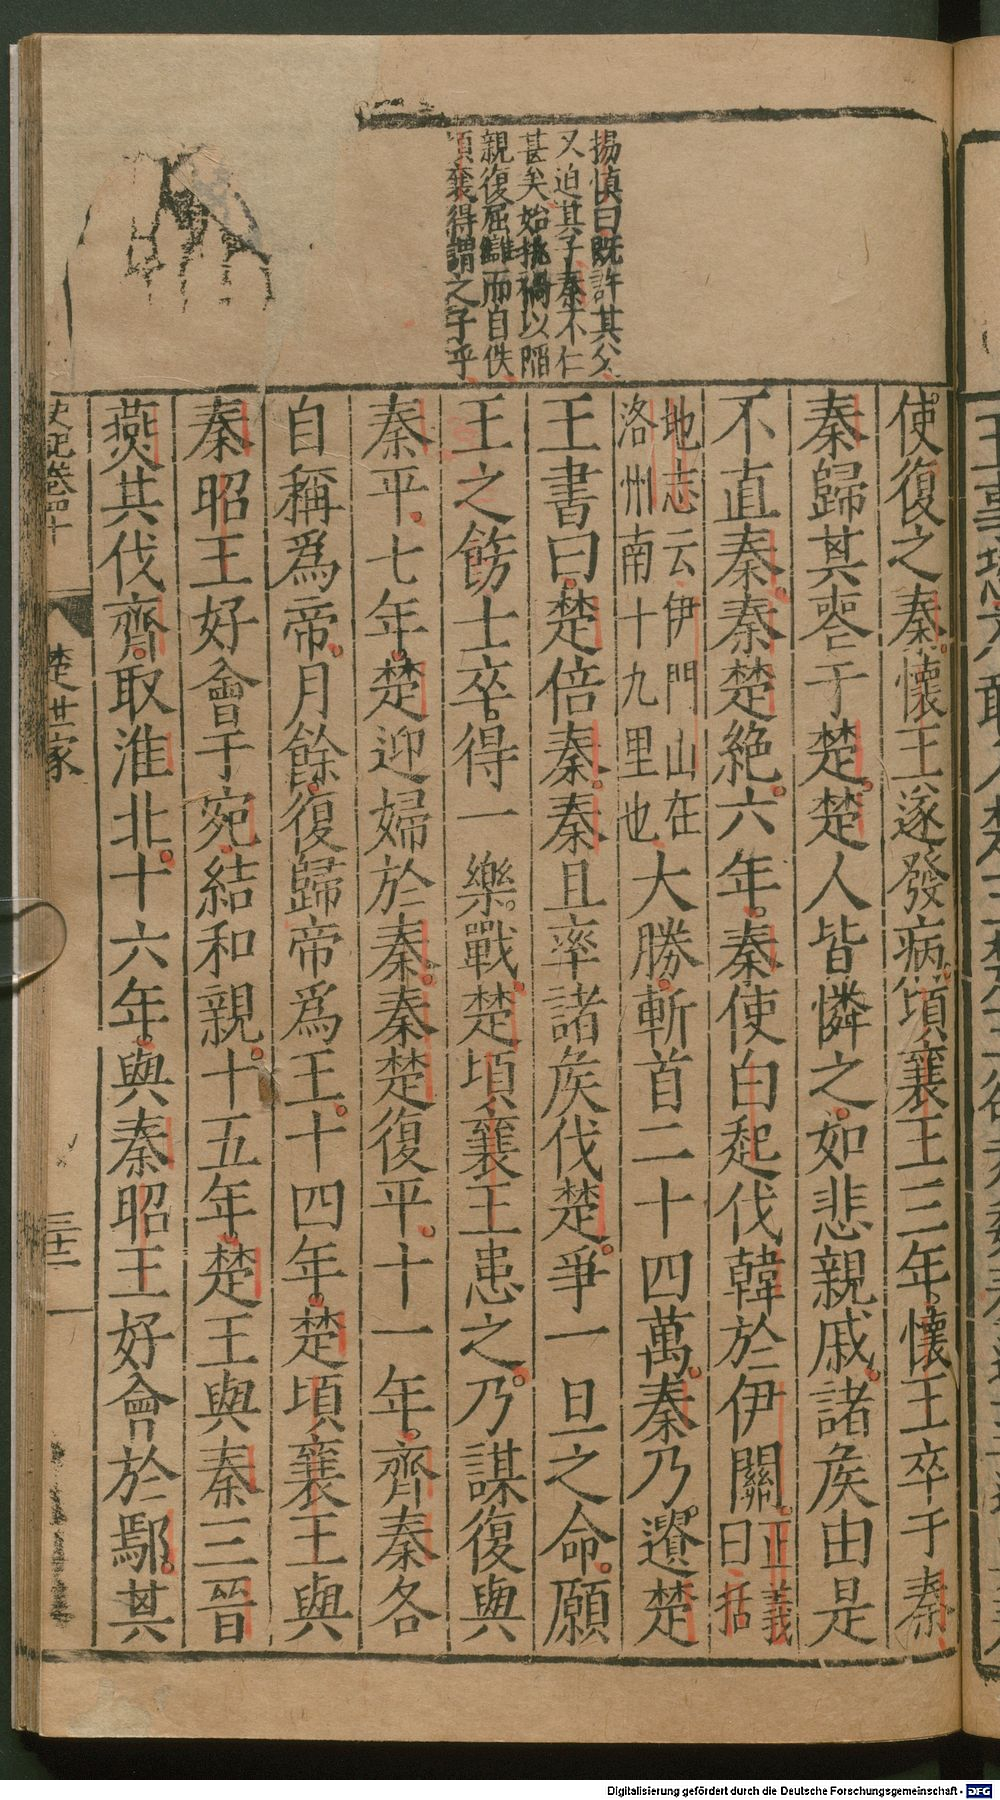 揚慎曰既許其父
又迫其子秦不仁
甚矣始挑禍以陷
親復屈讎而自佚
頃襄得謂之子乎
使復之秦懷王遂發病頃襄王三年懷王卒于秦
秦歸其喪于楚楚人皆憐之如悲親戚諸矦由是
不直秦秦楚絕六年秦使白起伐韓於伊闕正義曰括
地志云伊門山在洛州南十九里也大勝斬首二十四萬秦乃遺楚
王書曰楚倍秦秦且率諸矦伐楚爭一旦之命願
王之飭士卒得一樂戰楚頃襄王患之乃謀復與
秦平七年楚迎婦於秦秦楚復平十一年齊秦各
自稱爲帝月餘復歸帝爲王十四年楚頃襄王與
秦昭王好會于宛結和親十五年楚王與秦三晉
燕其伐齊取淮北十六年與秦昭王好會於鄢其
史記卷四十
楚世家
三十二
Digitalisierung gefördert durch die Deutsche Forschungsgemeinschaft - DFG